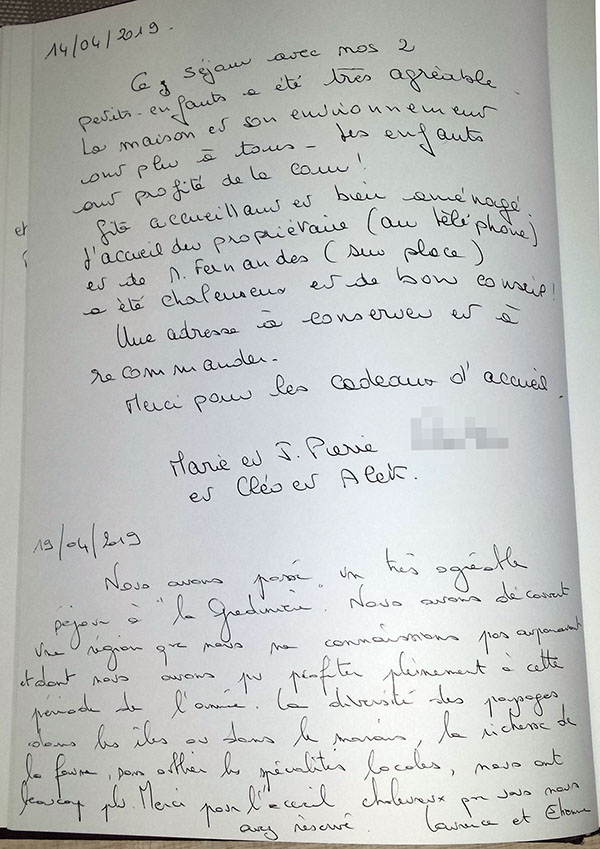 14/04/2019.
Ce séjour avec nos 2
petits-enfants a été très agréable.
La maison et son environnement
ont plu à tous - Les enfants
ont profité de la cour !
Gîte accueillant et bien aménagé
L'accueil du propriétaire (au téléphone)
et de M. Fernandes (sur place)
a été chaleureux et de bon conseil !
Une adresse à conserver et à
recommander.
Merci pour les cadeaux d'accueil.
Marie et J. Pierre
et Cléo et Alek.
19/04/2019
Nous avons passé un très agréable
séjour à "la Gredinière". Nous avons découvert
une région que nous ne connaissions pas auparavant
et dont nous avons pu profiter pleinement à cette
période de l'année. La diversité des paysages
dans les îles ou dans le marais, la richesse de
la faune, sans oublier les spécialités locales, nous ont
beaucoup plu. Merci pour l'accueil chaleureux que vous nous
avez réservé. Laurence et Etienne
et